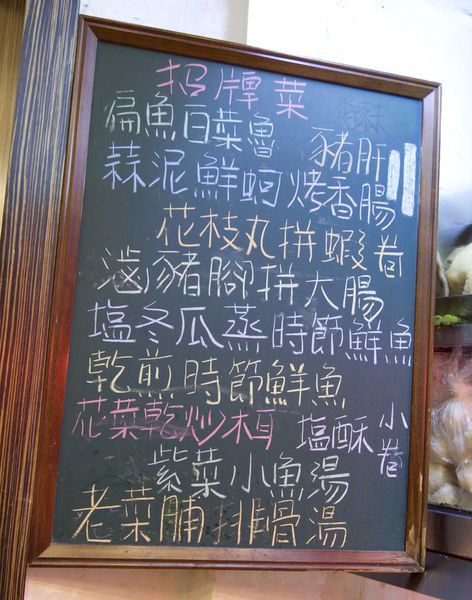 招牌菜
扁魚白菜魯
豬肝
蒜泥鮮蚵
烤香腸
花枝丸拼蝦卷
滷豬腳拼大腸
塩冬瓜蒸時節鮮魚
乾煎時節鮮魚
花菜乾炒木耳
塩酥小卷
紫菜小魚湯
老菜脯排骨湯